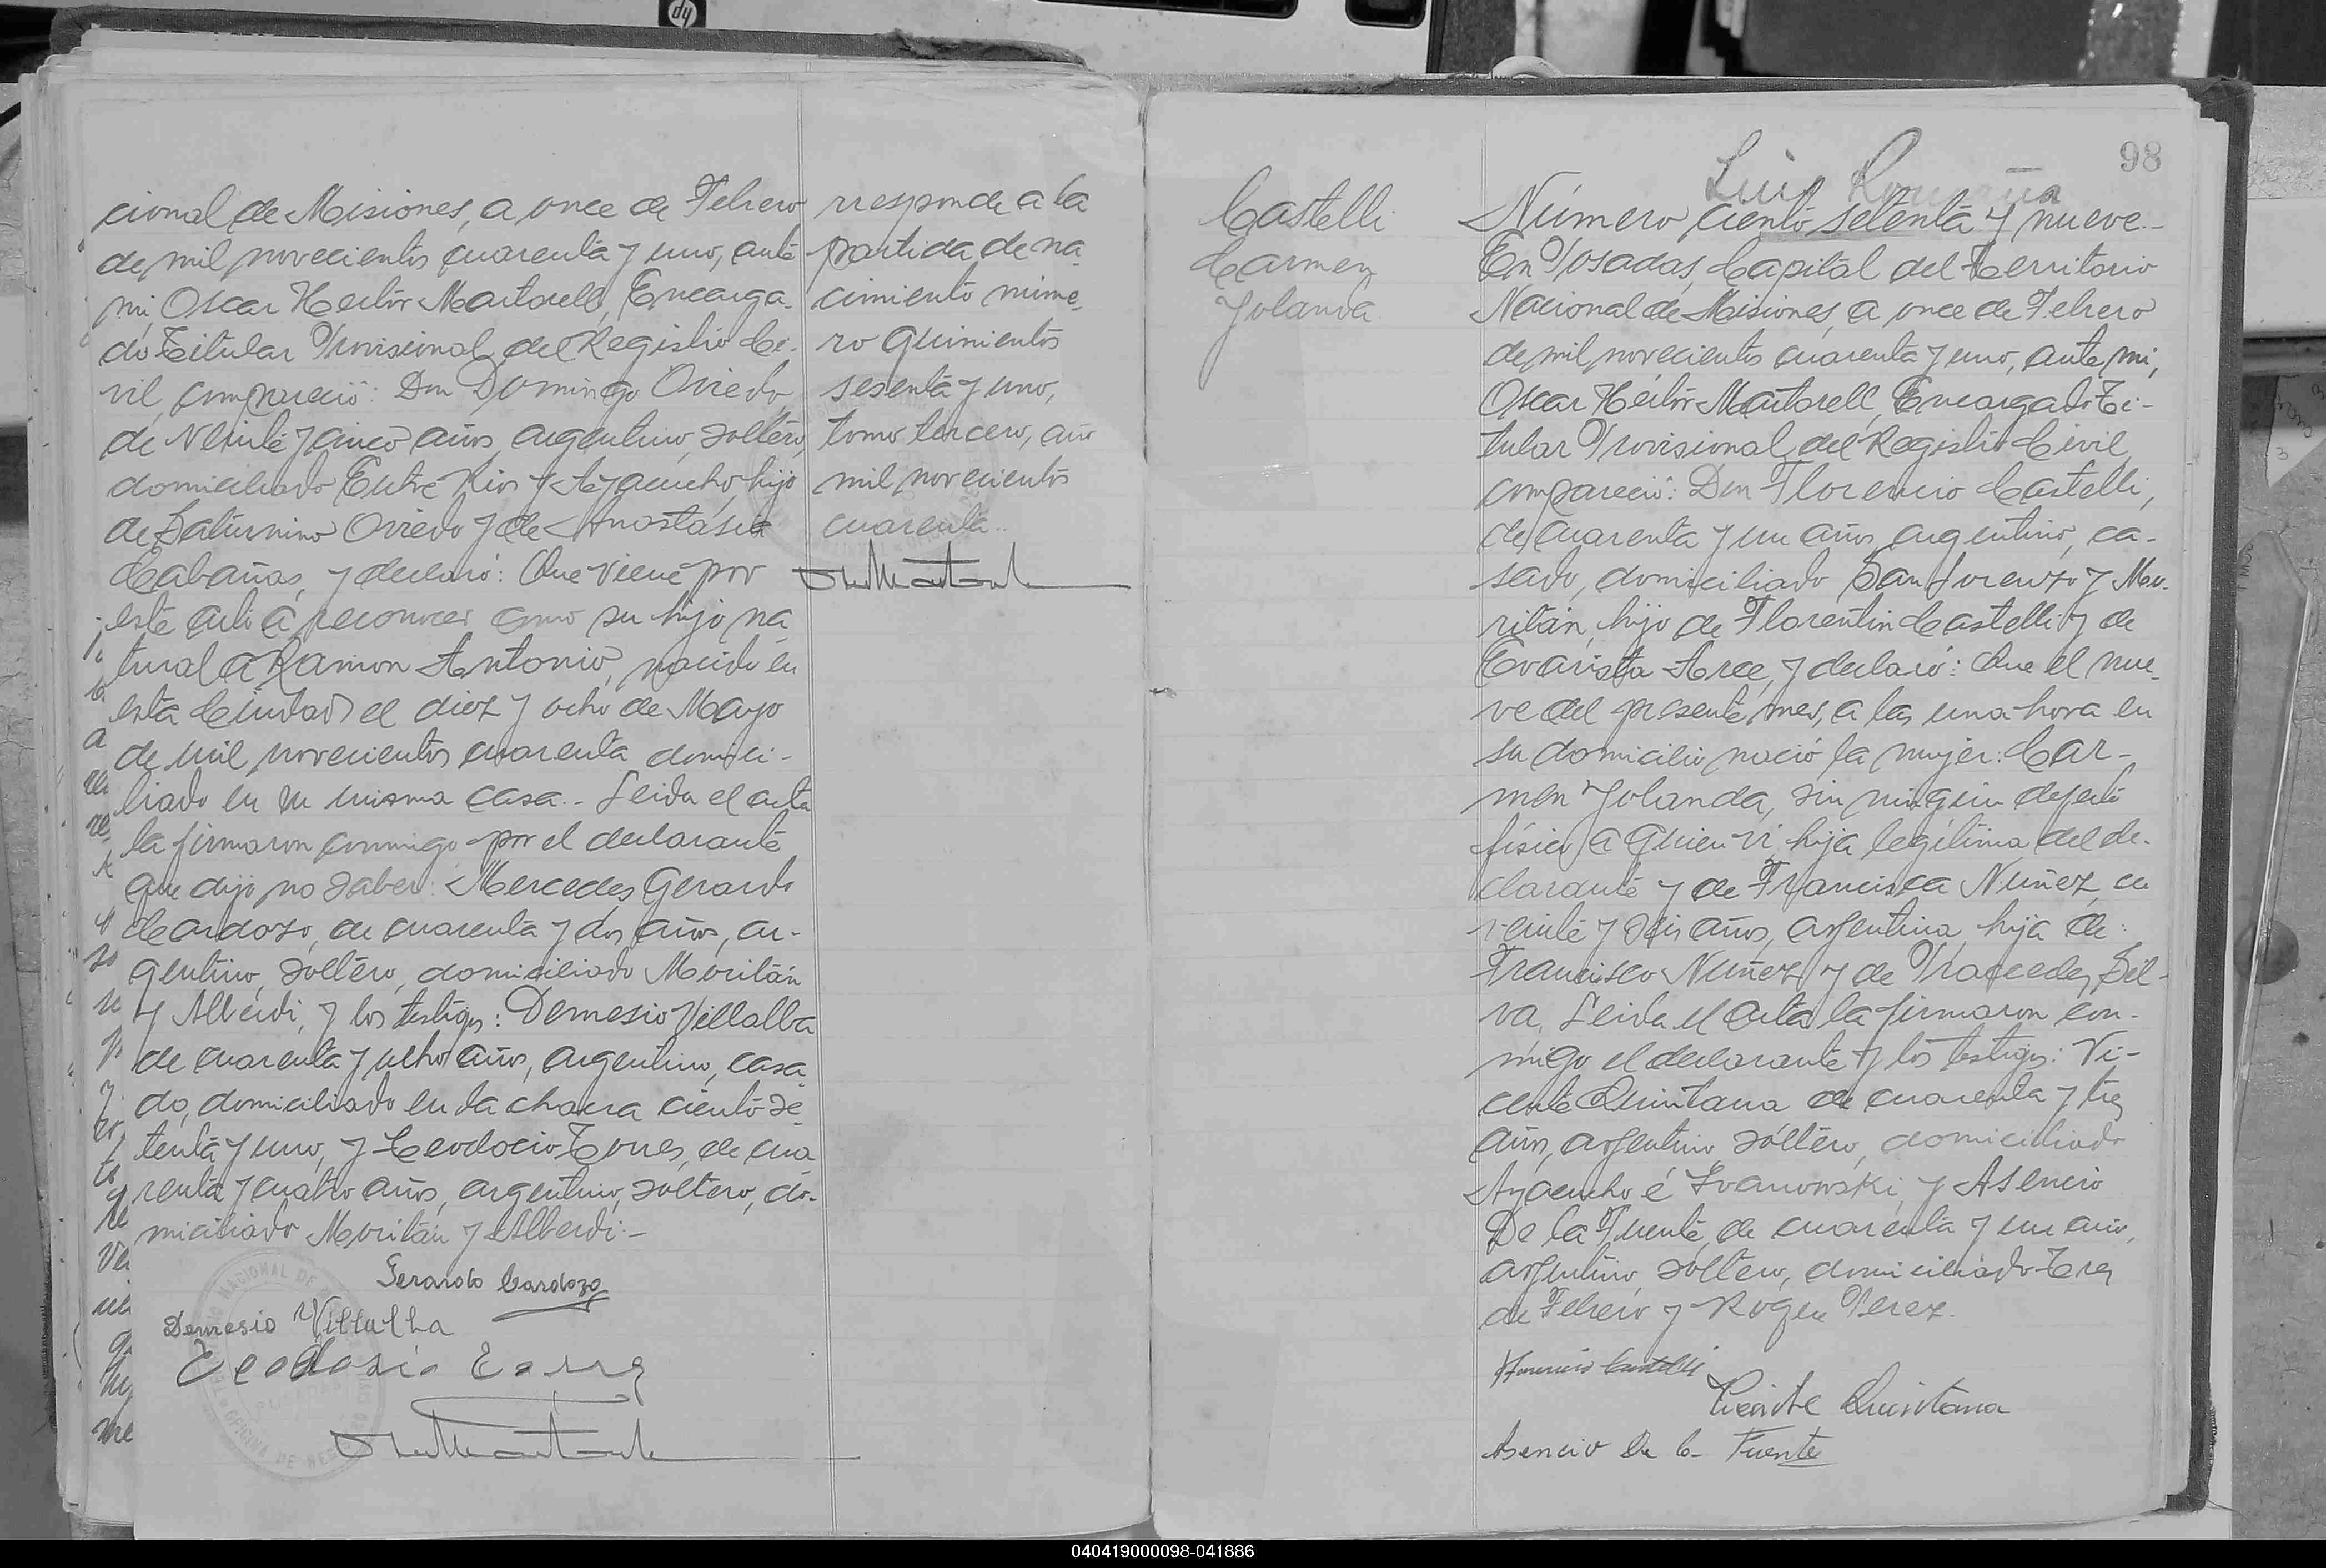 cional de Misiones, a once de Febrero
de mil novecientos cuarenta y uno, ante
mi, Oscar Hector Martorell, Encarga-
do Titular Provisional del Registro Ci-
vil, compareció: Don Domingo Oviedo,
de Veinte y cinco años, argentino, soltero,
domiciliado Entre Rios y Ayacucho, hijo
de Saturnino Oviedo y de Anastasia
Cabañas, y declaró: Que viene por
este acto a reconocer como su hijo na
tural a Ramon Antonio, nacido en
esta Ciudad el diez y ocho de Mayo
de mil novecientos cuarenta domici-
liado en su misma casa.- Leida el acta
la firmaron conmigo por el declarante
que dijo no saber: Mercedes Gerardo
Cardozo, de cuarenta y dos años, ar-
gentino, soltero, domiciliado Moritán
y Alberdi, y los testigos: Demesio Villalba
de cuarenta y ocho años, argentino, casa-
do, domiciliado en la chacra ciento se
tenta y uno, y Teodocio Torres, de cua
renta y cuatro años, argentino, soltero, do-
miciliado Moritán y Alberdi.-
Gerardo Cardozo
Demesio Villalba
Teodosio
rresponde a la
partida de na-
cimiento núme-
ro quinientos
sesenta y uno,
tomo tercero, año
mil novecientos
cuarenta..
98
Luis
Castelli
Carmen
Yolanda
Número ciento setenta y nueve.-
En Posadas, Capital del Territorio
Nacional de Misiones, a once de Febrero
de mil novecientos cuarenta y uno, ante mi,
Oscar Héctor Martorell, Encargado Ti-
tular Provisional del Registro Civil,
compareció: Don Florencio Castelli,
de cuarenta y un años, argentino, ca-
sado, domiciliado San Lorenzo y Mo-
ritán, hijo de Florentin Castelli y de
Evarista Arce, y declaró: Que el nue-
ve del presente mes, a las una hora en
su domicilio nació la mujer: Car-
men Yolanda, sin ningún defecto
físico, a quien vi, hija legítima del de-
clarante y de Francisca Nuñez, de
veinte y seis años, argentina, hija de:
Francisco Nuñez y de Pracedes Sil-
va. Leida el acta la firmaron con-
migo el declarante y los testigos: Vi-
cente Quintana de cuarenta y tres
años, argentino, soltero, domiciliado
Ayacucho é Ivanowski y Asencio
De la Fuente, de cuarenta y un año,
argentino, soltero, domiciliado Tres
de Febrero y Roque Perez.
Florencio Castelli
Vicente Quintana
Asencio De la Fuente
040419000098-041886